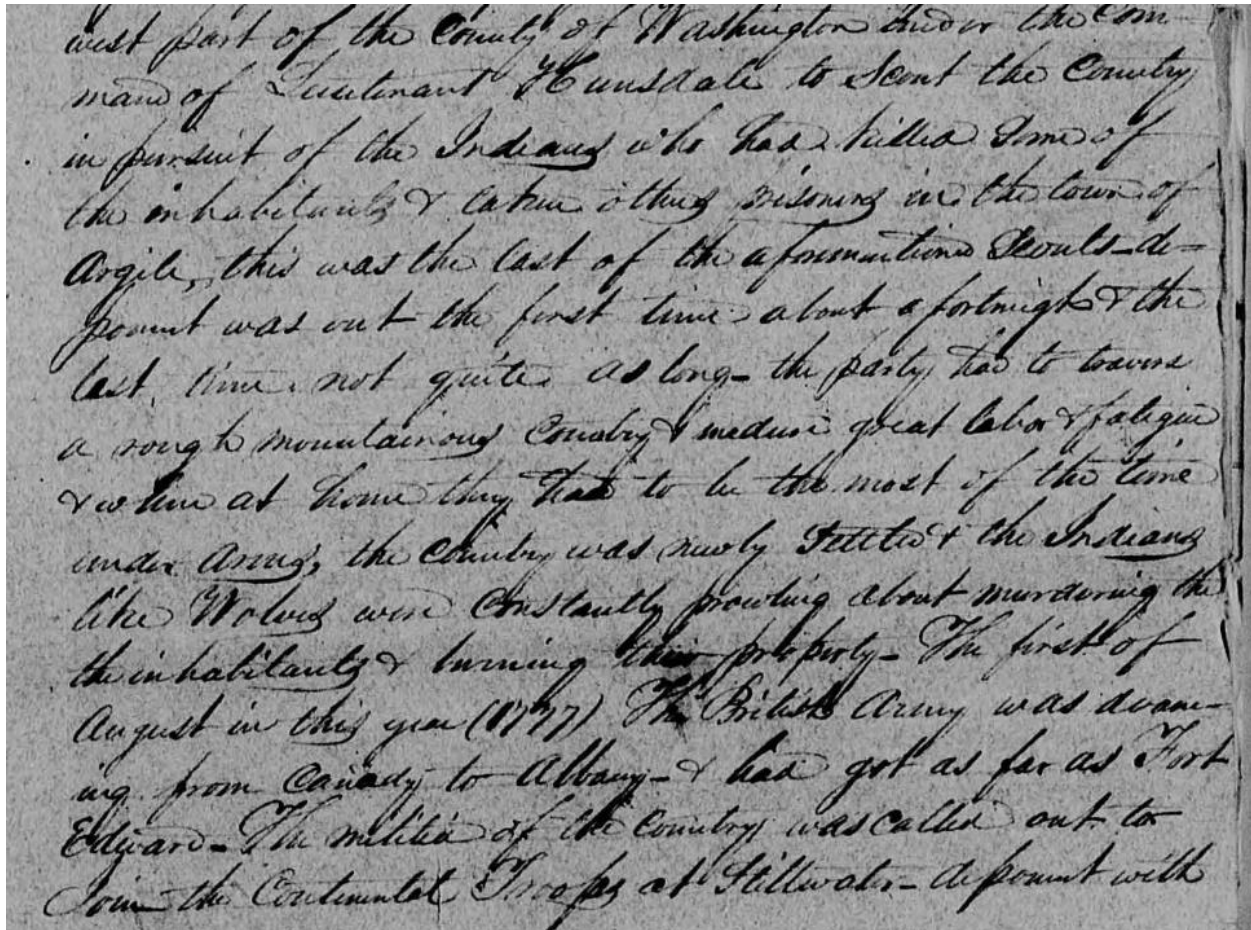 west part of the County of Washington under the Com
mand of Lieutenant Hunsdale to Scout the Country
in pursuit of the Indians who had killed Some of
the inhabitants & taken others prisoners in the town of
Argile, this was the last of the aforementioned Scouts - de-
ponent was out the first time about a fortnight & the
last time not quite as long - the party had to travers
a rough mountainous Country & endure great labor & fatigue
& when at home they had to be the most of the time
under Arms, the Country was newly Settled & the Indians
like Wolves were Constantly prowling about murdering the
the inhabitants & burning their property - The first of
August in this year (1777) The British Army was dvanc-
ing from Canady to Albany - & had got as far as Fort
Edward - The militia of the Country was called out to
Join the Continental Troops at Stillwater - deponent with